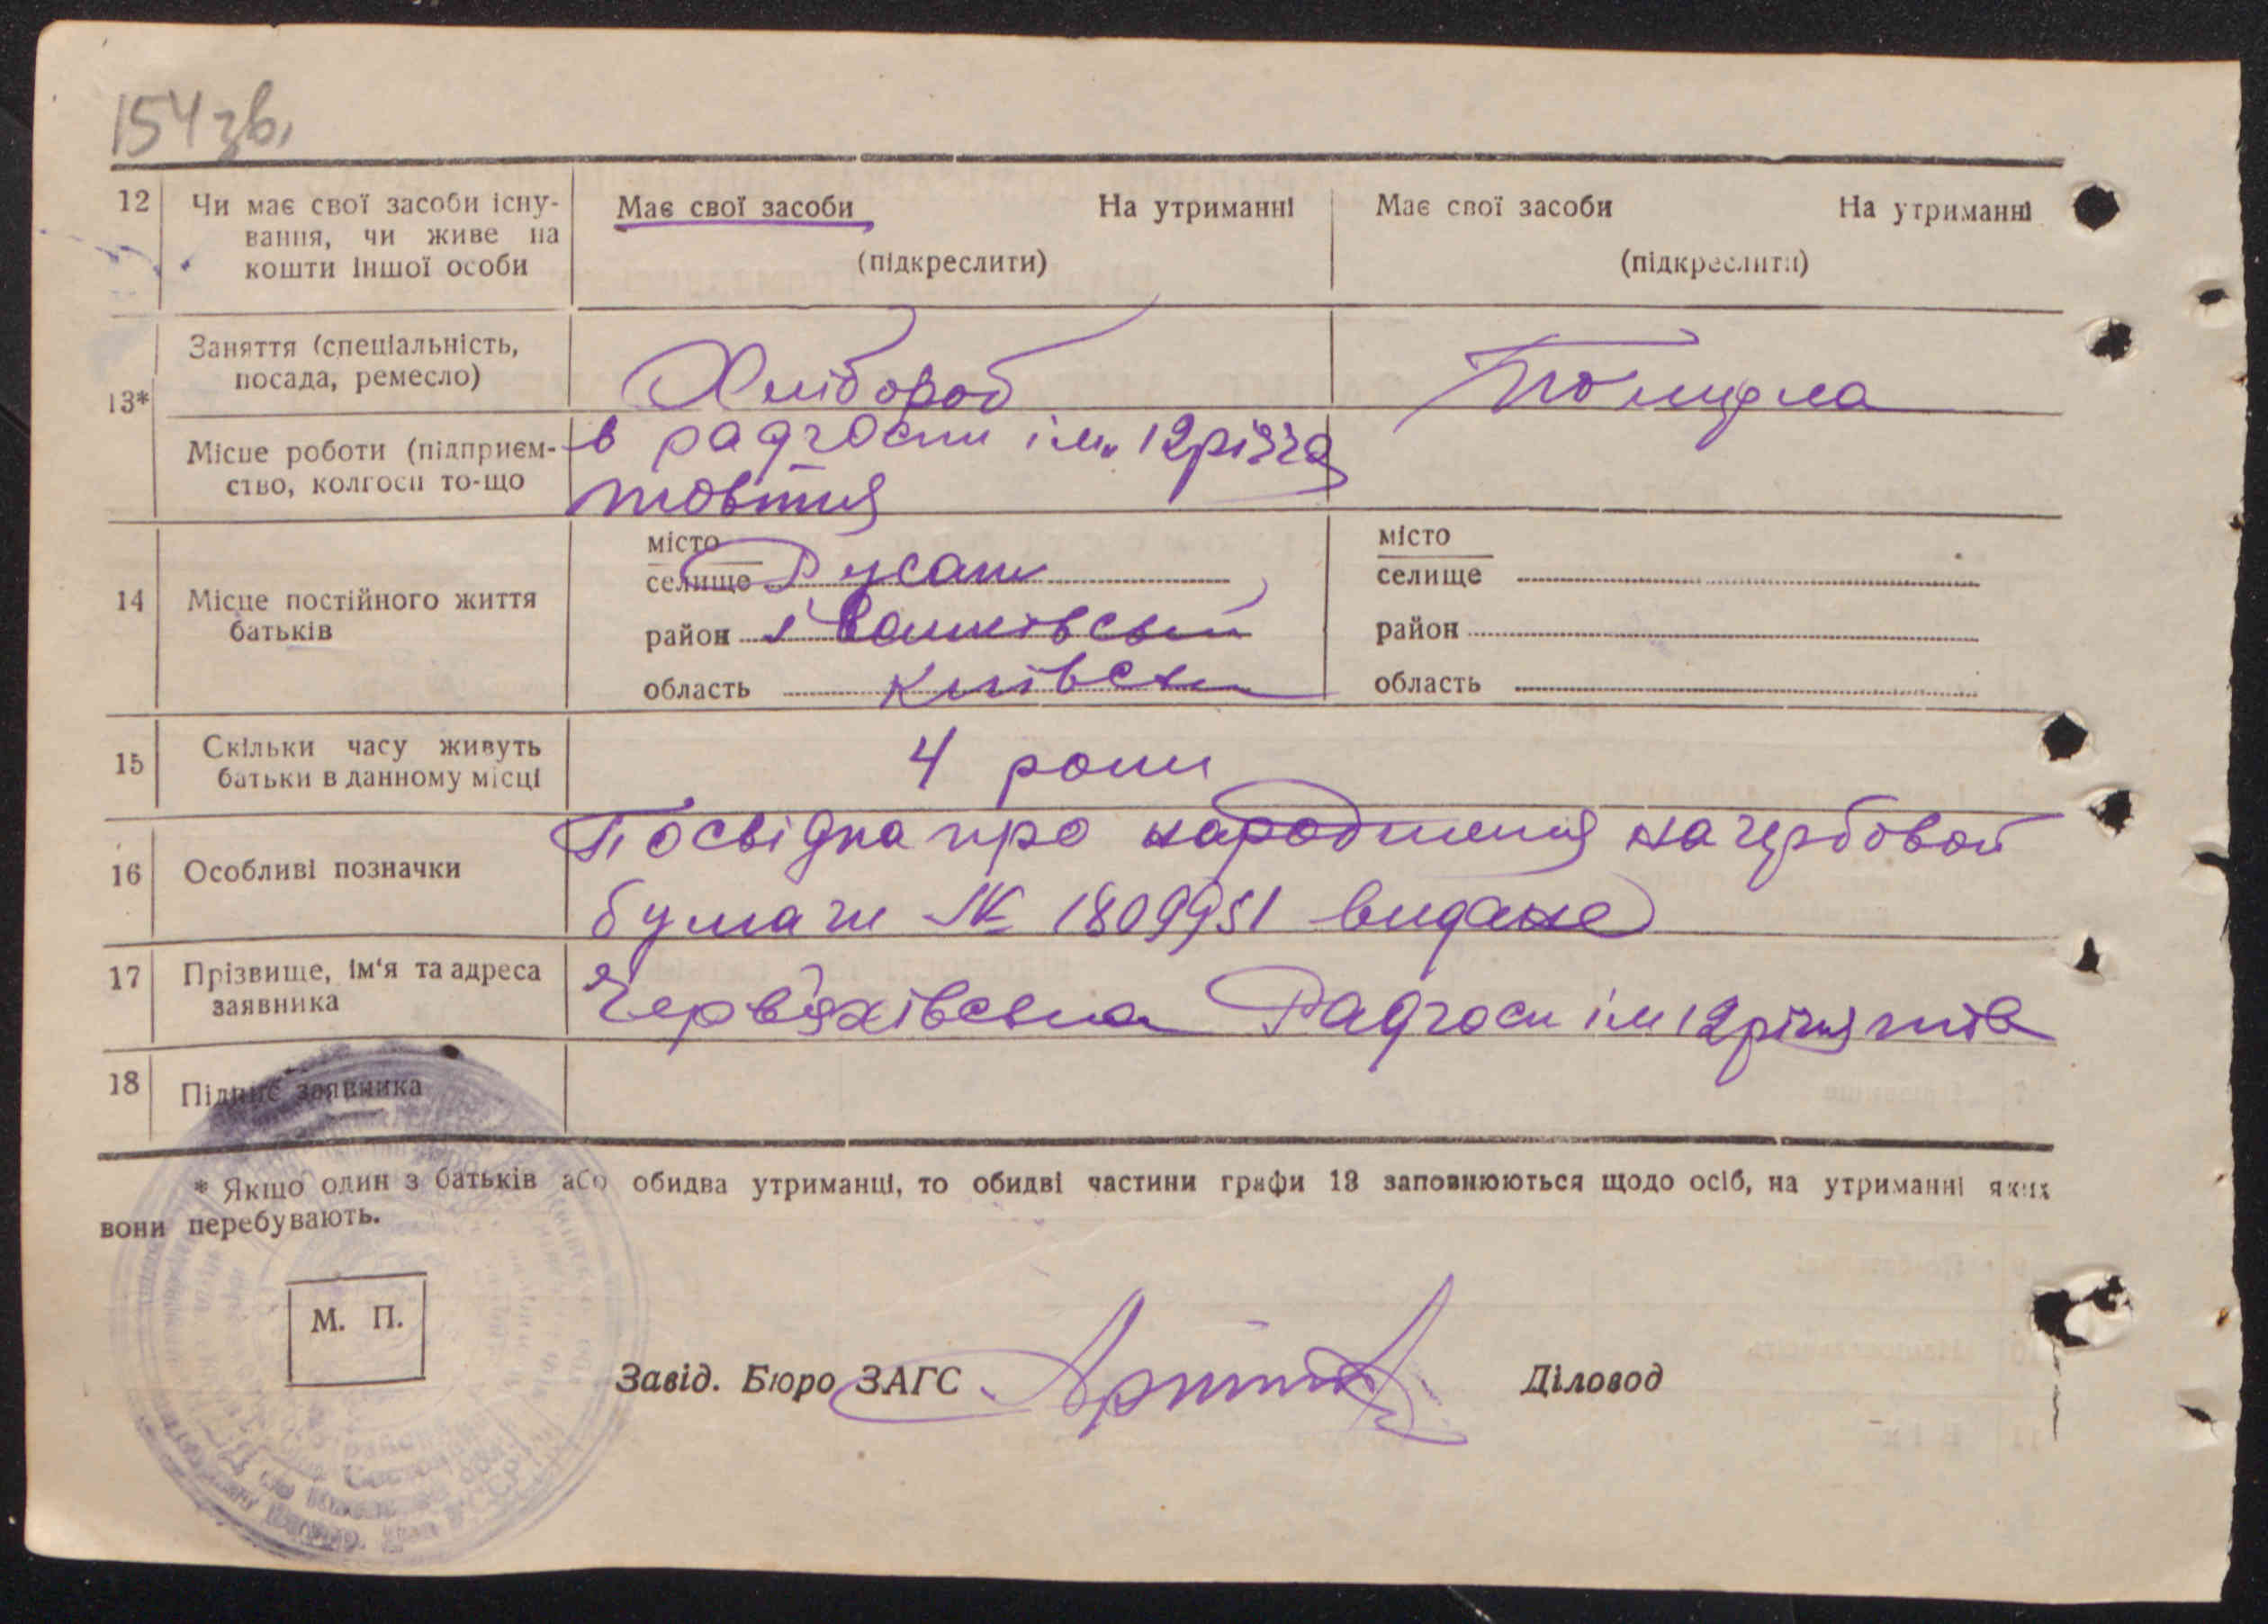 154 зв.
12 Чи має свої засоби існу-
вання, чи живе на
кошти іншої особи
Має свої засоби На утриманні
(підкреслити)
Має свої засоби На утриманні
(підкреслити)
13*
Заняття (спеціальність,
посада, ремесло)
Хлібороб
Місце роботи (підприєм-
ство, колгосп то-що
в радгоспи ім. 12річча
жовтня
14 Місце постійного життя
батьків
місто
селище Русаки
район Іванківськ
область Київськ
місто
селище
район
область
15 Скільки часу живуть
батьки в данному місці
4 роки
16 Особливі позначки
Посвідка про народження на гербовой
бумаги № 1809951 видане
17 Прізвище, ім'я та адреса
заявника
Червяхівська Радгосп ім 12річя
18 Підпис заявника
* Якщо один з батьків або обидва утриманці, то обидві частини графи 13 заповнюються щодо осіб, на утриманні яких
вони перебувають.
М. П.
Завід. Бюро ЗАГС Діловод